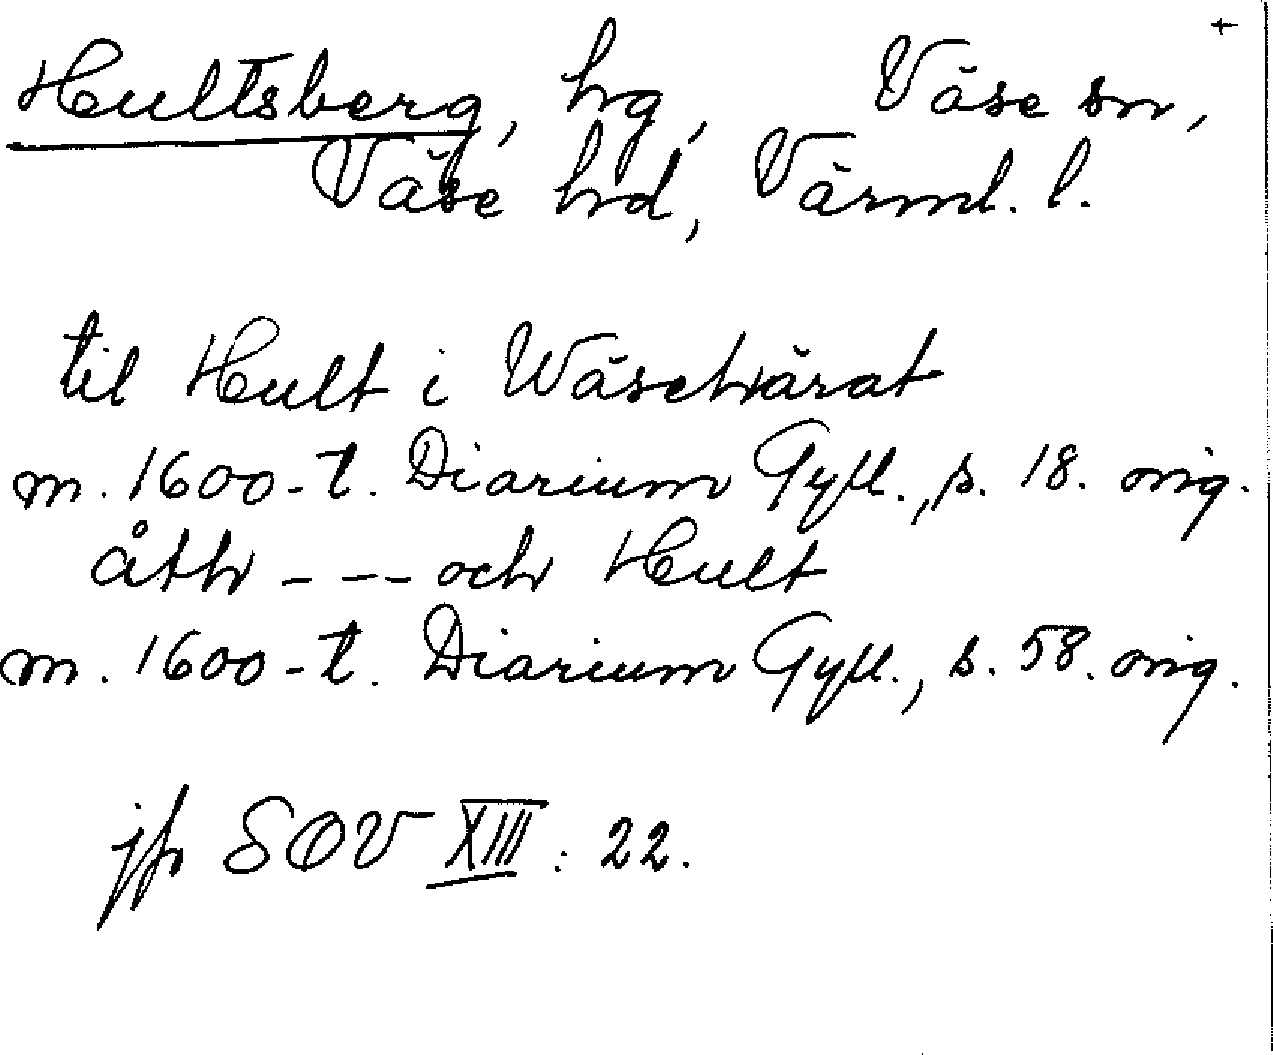 +
Hultsberg, hg, Väse sn,
Väse hd, Värml. l.
til Hult i Wäsehärat
m. 1600-t. Diarium Gyll., s. 18. orig.
åth - - - och Hult
m. 1600-t. Diarium Gyll., s. 58. orig.
jfr SOV XIII: 22.